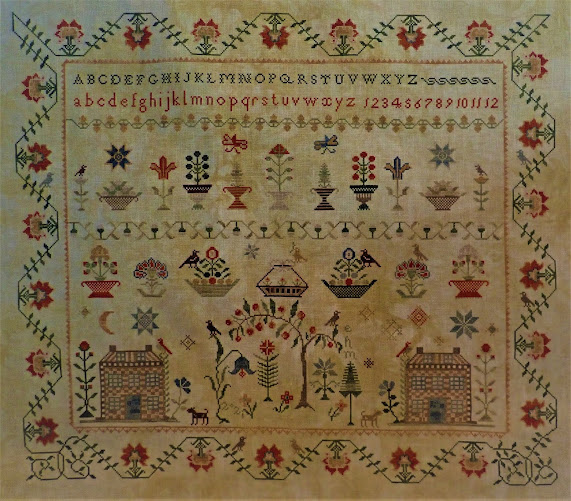 ABCDEFGHIJKLMNOPQRSTUVWXYZ
abcdefghijklmnopqrstuvwxyz 1 2 3 4 5 6 7 8 9 10 11 12